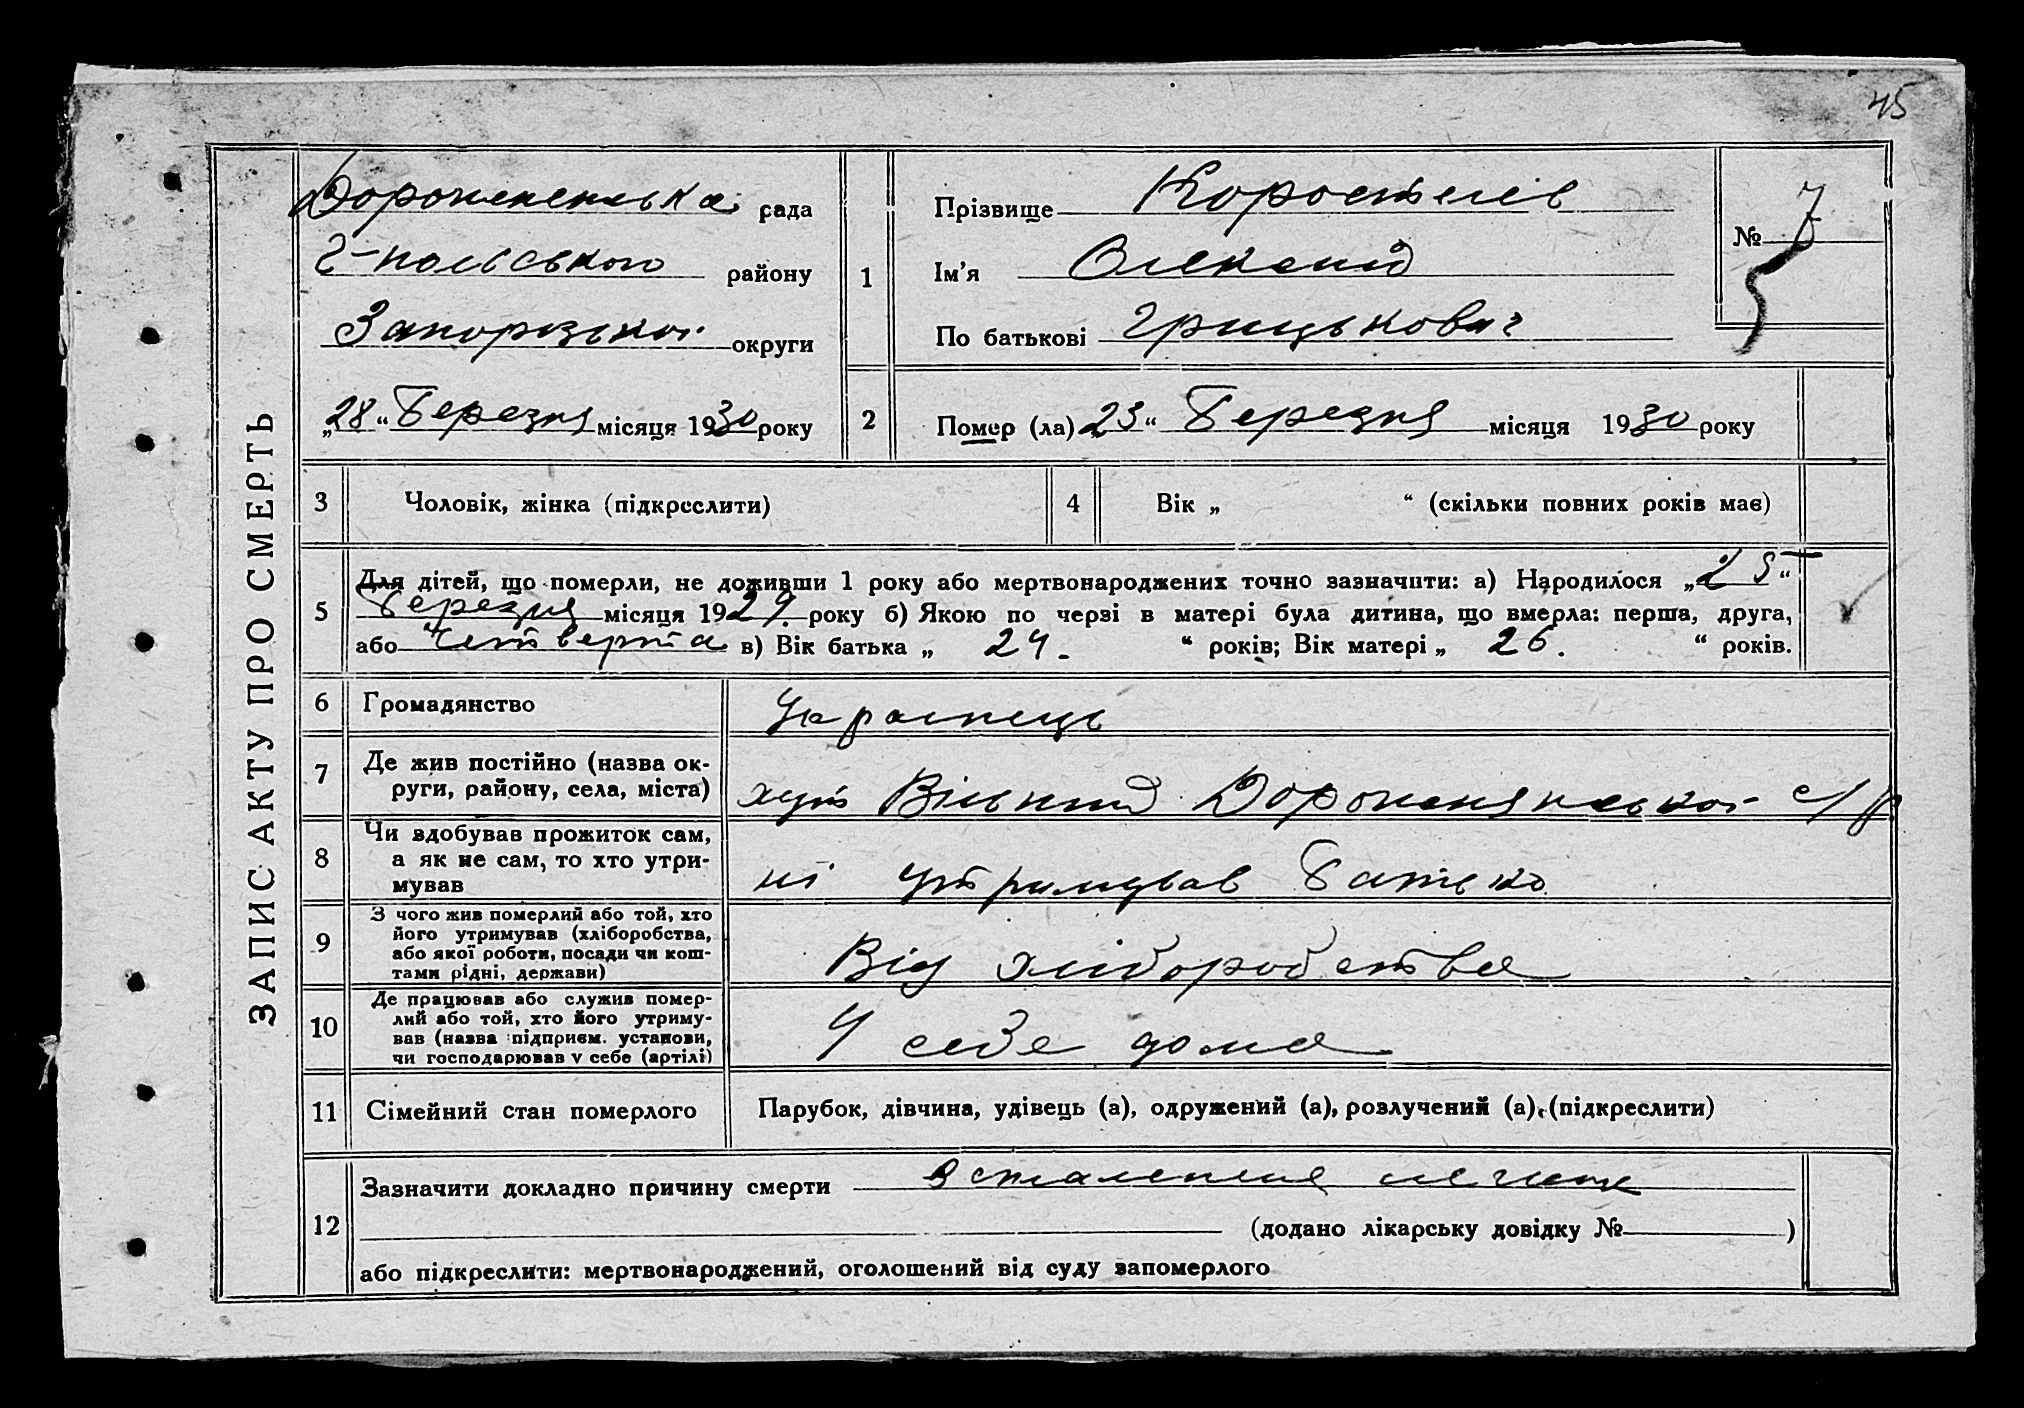 45
ЗАПИС АКТУ ПРО СМЕРТЬ
рада
Г-польського району
Запорізької округи
„28“ Березня місяця 1930 року
1
Прізвище Коростелів
Ім’я
По батькові Грицькович
№ 7
2
Помер (ла) „23“ Березня місяця 1930 року
3 Чоловік, жінка (підкреслити)
4 Вік „ “ (скільки повних років має)
5
Для дітей, що померли, не доживши 1 року або мертвонароджених точно зазначити: а) Народилося „25“
Березня місяця 1929 року б) Якою по черзі в матері була дитина, що вмерла: перша, друга,
або четверта в) Вік батька „ 24. “ років; Вік матері „ 26. “ років.
6 Громадянство Українець
7 Де жив постійно (назва округи, району, села, міста)
хут Вільний с/р.
8 Чи здобував прожиток сам,
а як не сам, то хто утри-
мував
ні утримував батько
9 З чого жив померлий або той, хто
його утримував (хліборобства,
або якої роботи, посади чи кош-
тами рідні, держави)
Від хліборобства
10 Де працював або служив помер-
лий або той, хто його утриму-
вав (назва підприєм. установи,
чи господарював у себе (артілі)
У себе дома
11 Сімейний стан померлого Парубок, дівчина, удівець (а), одружений (а), розлучений (а), (підкреслити)
12
Зазначити докладно причину смерти
(додано лікарську довідку № )
або підкреслити: мертвонароджений, оголошений від суду запомерлого